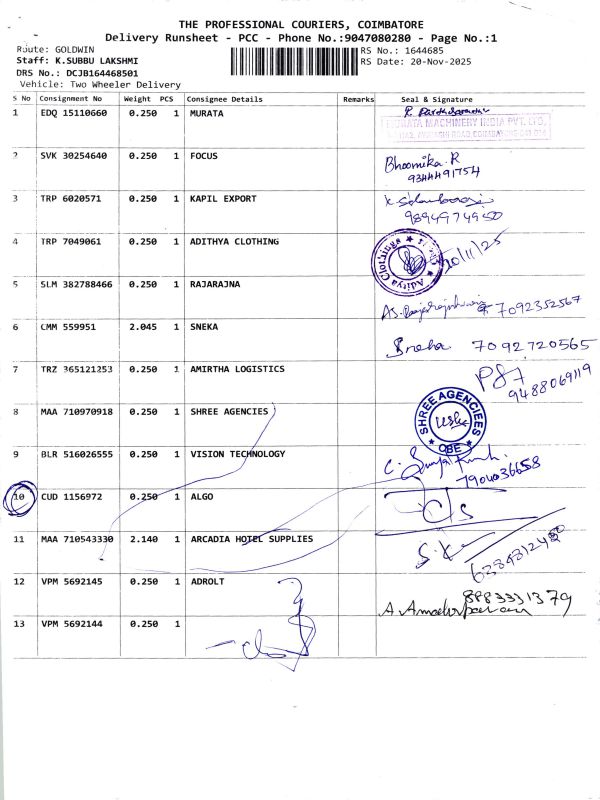 THE PROFESSIONAL COURIERS, COIMBATORE
Delivery Runsheet - PCC - Phone No.:9047080280 - Page No.:1
Route: GOLDWIN
RS No.: 1644685
Staff: K.SUBBU LAKSHMI
RS Date: 20-Nov-2025
DRS No.: DCJB164468501
Vehicle: Two Wheeler Delivery
S No Consignment No Weight PCS Consignee Details Remarks Seal & Signature
1 EDQ 15110660 0.250 1 MURATA
MURATA MACHINERY INDIA PVT. LTD.
2 SVK 30254640 0.250 1 FOCUS
Bhoomika. R
9344491754
3 TRP 6020571 0.250 1 KAPIL EXPORT
9894974950
4 TRP 7049061 0.250 1 ADITHYA CLOTHING
Aditya Clothings
20/11/25
5 SLM 382788466 0.250 1 RAJARAJNA
7092352567
6 CMM 559951 2.045 1 SNEKA
Sneha 7092720565
7 TRZ 365121253 0.250 1 AMIRTHA LOGISTICS
9488069119
8 MAA 710970918 0.250 1 SHREE AGENCIES
SHREE AGENCIEES
CBE
9 BLR 516026555 0.250 1 VISION TECHNOLOGY
7904036658
10 CUD 1156972 0.250 1 ALGO
11 MAA 710543330 2.140 1 ARCADIA HOTEL SUPPLIES
12 VPM 5692145 0.250 1 ADROLT
8883331379
13 VPM 5692144 0.250 1